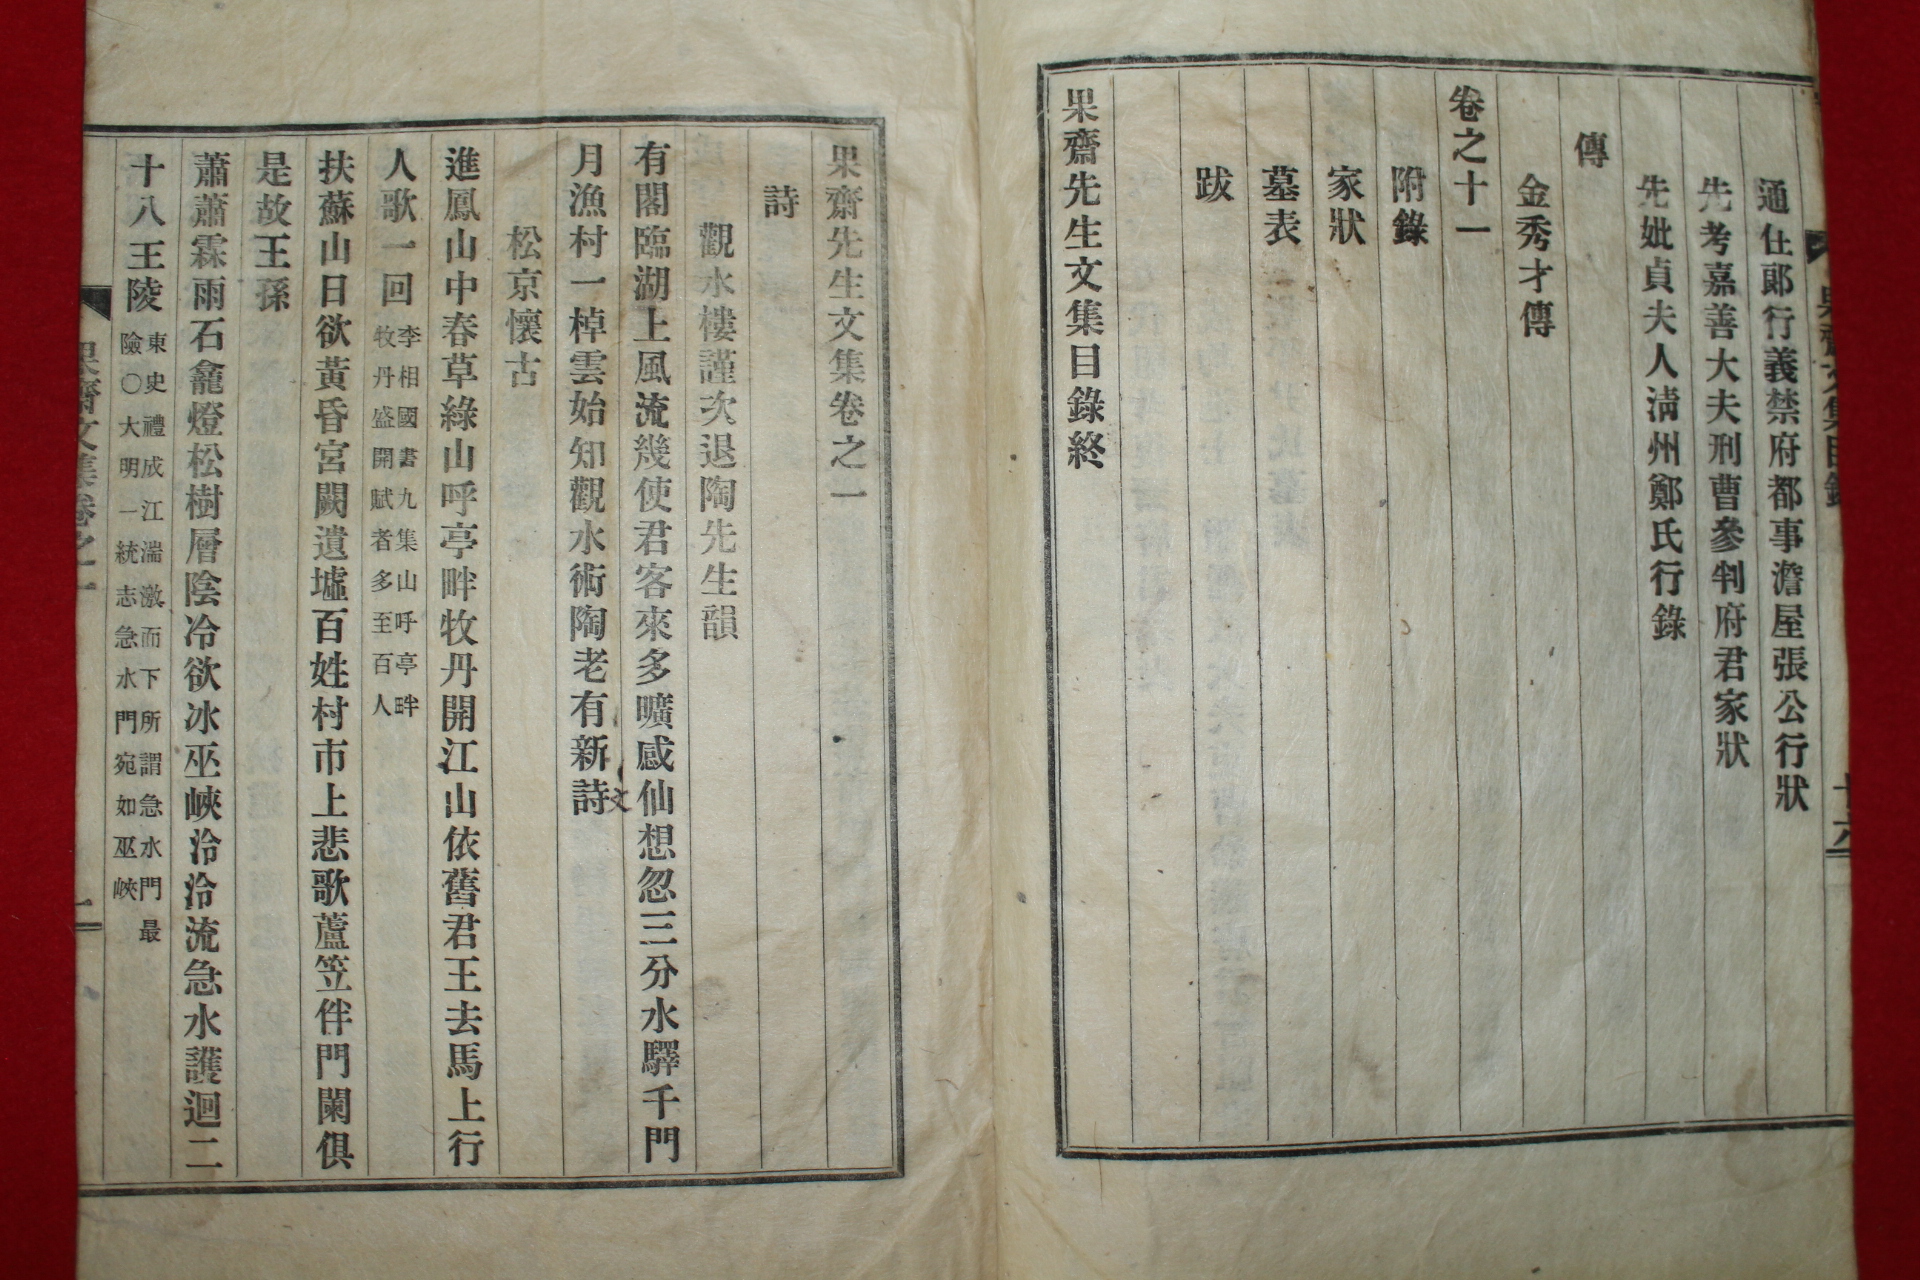 通仕郞行義禁府都事澹屋張公行狀
先考嘉善大夫刑曹參判府君家狀
先妣貞夫人淸州鄭氏行錄
傳
金秀才傳
卷之十一
附錄
家狀
墓表
跋
果齋先生文集目錄終
果齋先生文集卷之一
詩
觀水樓謹次退陶先生韻
有閣臨湖上風流幾使君客來多曠感仙想忽三分水驛千門
月漁村一棹雲始知觀水術陶老有新詩
文
松京懷古
進鳳山中春草綠山呼亭畔牧丹開江山依舊君王去馬上行
人歌一回李相國書九集山呼亭畔牧丹盛開賦者多至百人
扶蘇山日欲黃昏宮闕遺墟百姓村市上悲歌蘆笠伴門闌俱
是故王孫
蕭蕭霖雨石龕燈松樹層陰冷欲冰巫峽泠泠流急水護迴二
十八王陵東史禮成江湍激而下所謂急水門最險〇大明一統志急水門宛如巫峽
果齋文集卷之一